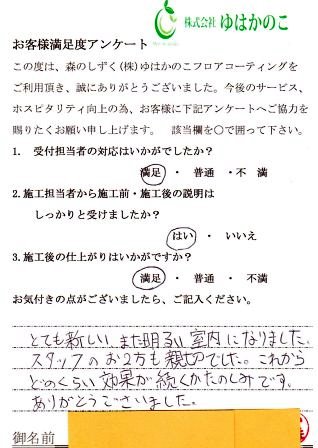 株式会社 ゆはかのこ
お客様満足度アンケート
この度は、森のしずく(株)ゆはかのこフロアコーティングを
ご利用頂き、誠にありがとうございました。今後のサービス、
ホスピタリティ向上の為、お客様に下記アンケートへご協力を
賜りたくお願い申し上げます。 該当欄を○で囲って下さい。
1. 受付担当者の対応はいかがでしたか?
満足 ・ 普通 ・不 満
2.施工担当者から施工前・施工後の説明は
しっかりと受けましたか?
はい ・ いいえ
3.施工後の仕上がりはいかがですか?
満足 ・ 普通 ・ 不満
お気付きの点がございましたら、ご記入ください。
とても新しい、また明るい室内になりました。
スタッフのお2方も親切でした。これから
どのくらい効果が続くかたのしみです。
ありがとうございました。
御名前